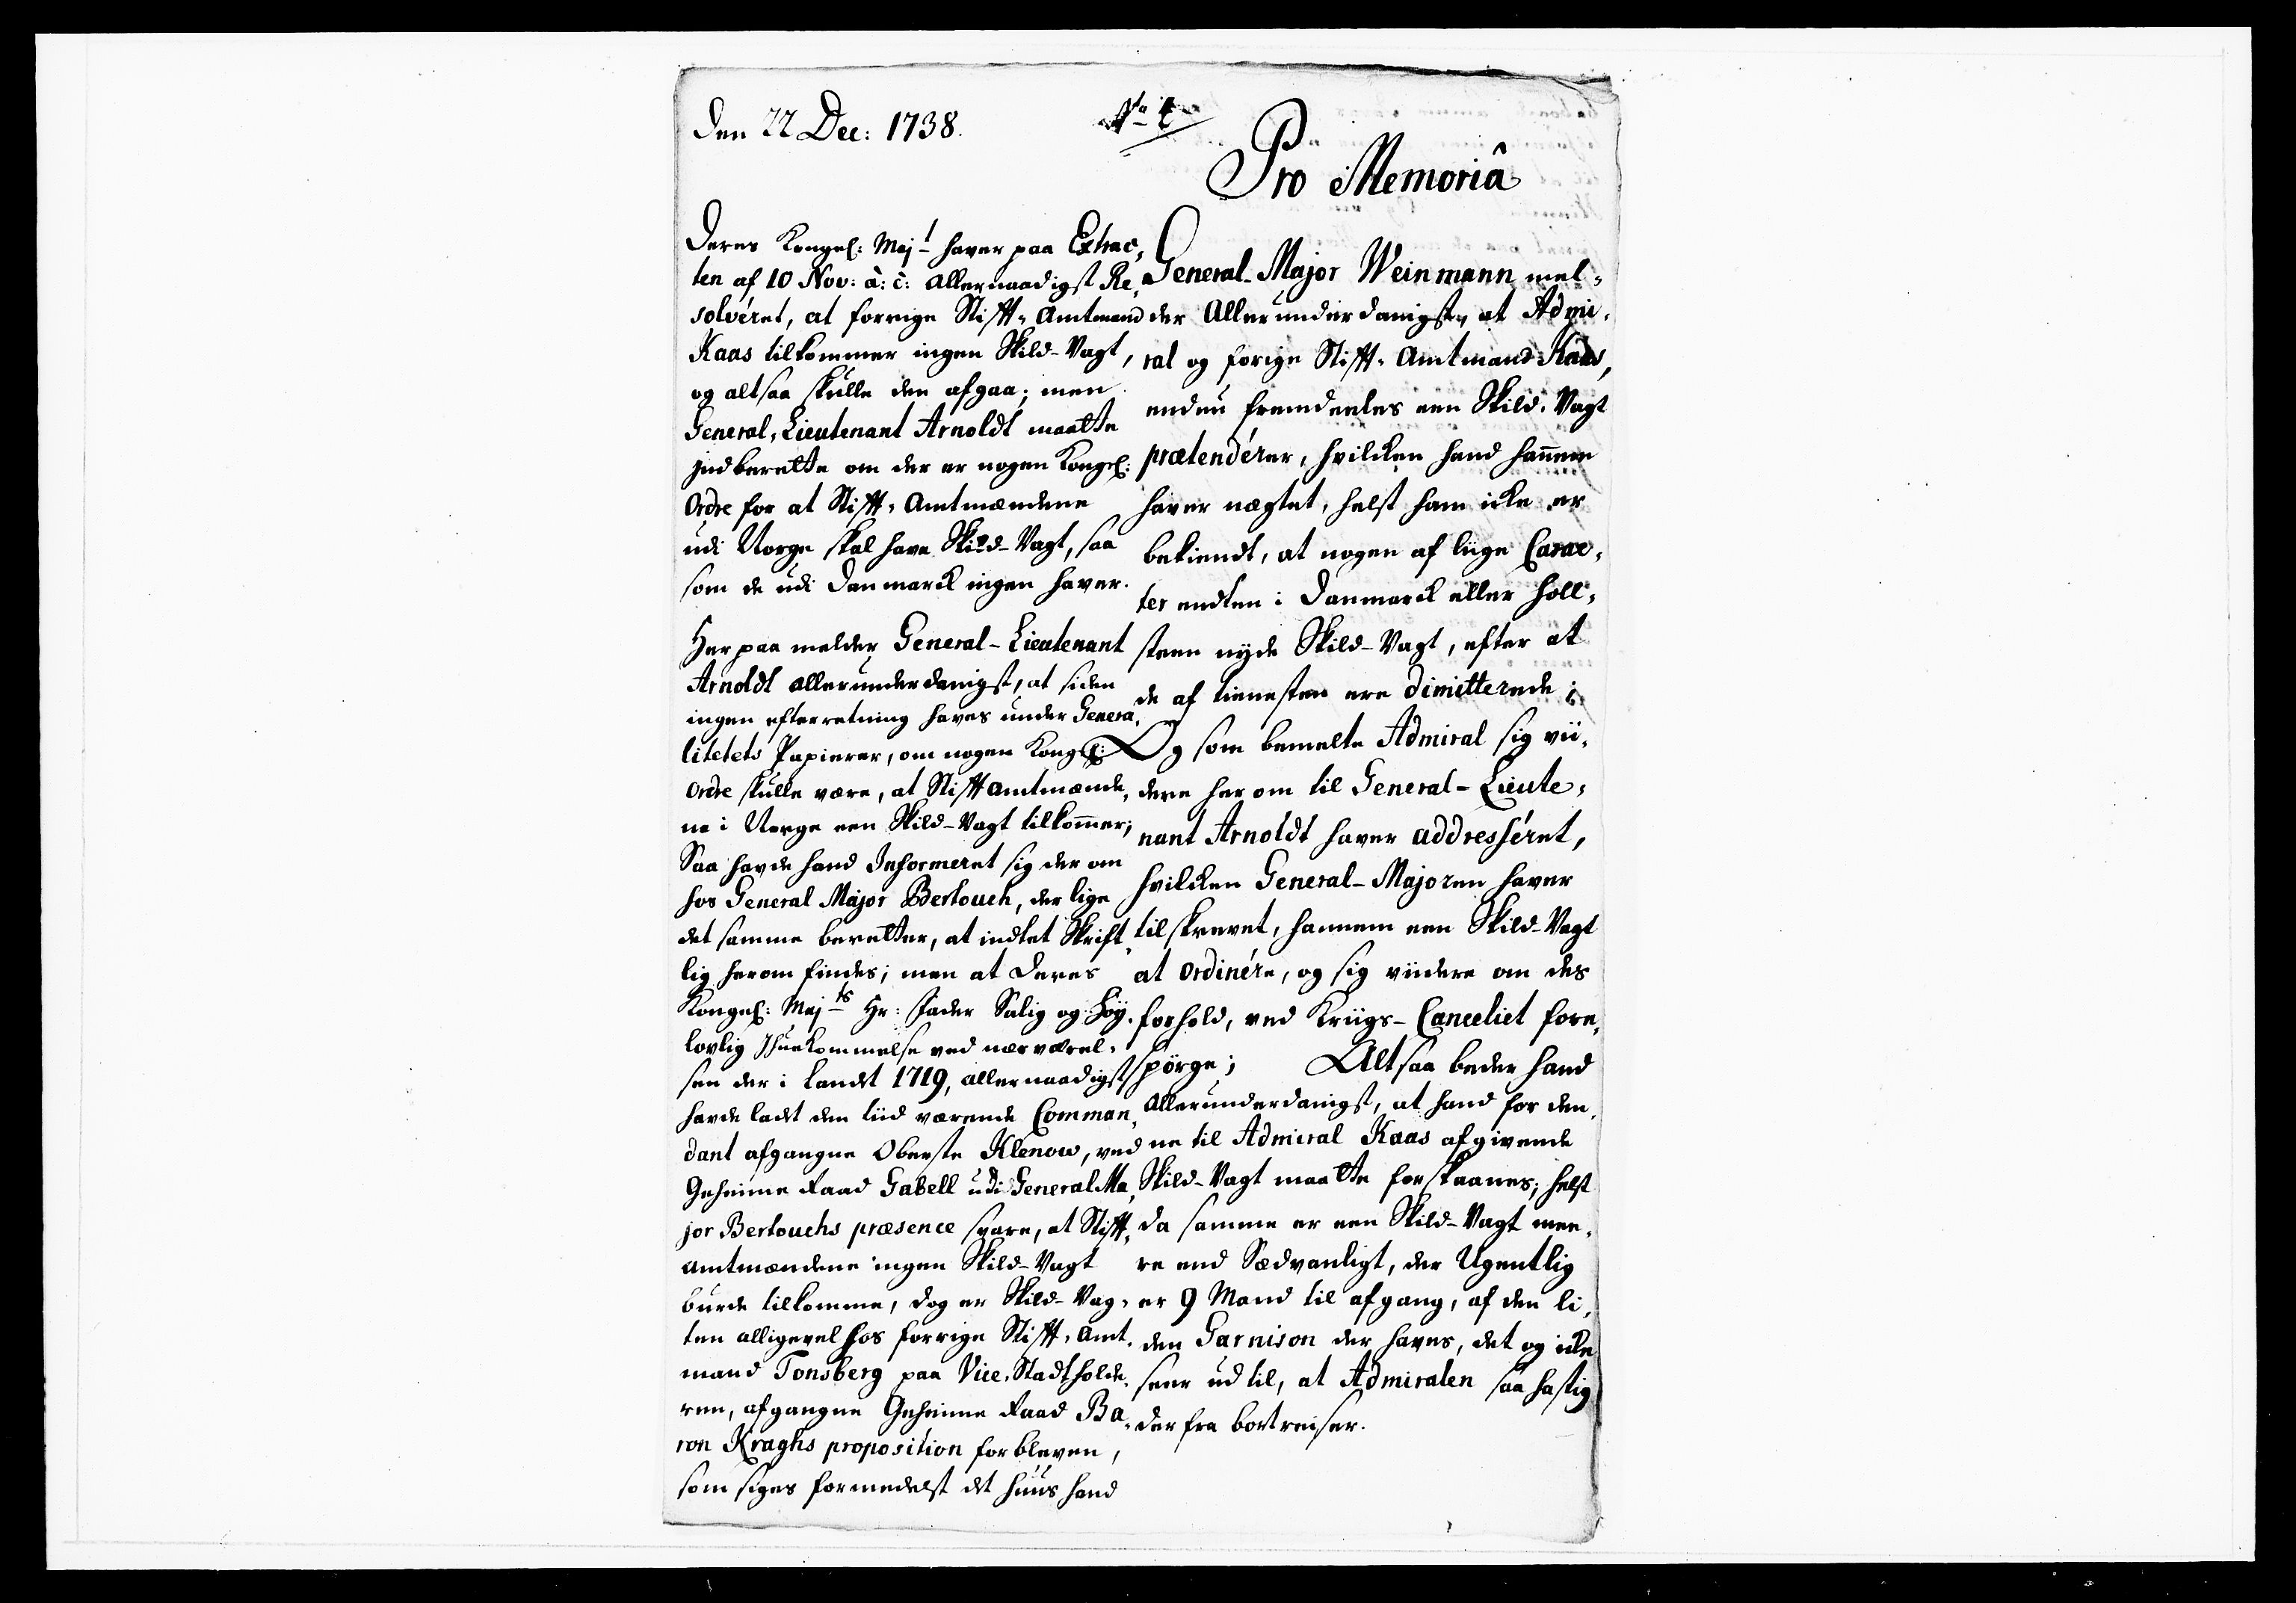 Den 22 Dec: 1738.
No 4
Pro Memoriâ
Deres Kongel: Majt haver paa Extrac,
ten af 10 Nov: à: c: Allernaadigst Re,
solvéret, at forrige Stifft, Amtmand
Kaas tilkommer ingen Skild-Vagt,
og altsaa skulle den afgaa; men
General, Lieutenant Arnoldt maatte
indberette om der er nogen Kongel:
Ordre for at Stifft, Amtmændene
udi Norge skal have Skild-Vagt, saa
som de udi Danmarck ingen haver.
Her paa melder General-Lieutenant
Arnoldt allerunderdanigst, at siden
ingen efterretning haves under Genera,
litetets Papierer, om nogen Kongel:
Ordre skulle være, at Stifftamtmænde,
ne i Norge een Skild-Vagt tilkommer;
Saa havde hand Informeret sig der om
hos General Major Bertouch, der lige
det samme beretter, at indtet Skrift,
lig herom findes; men at Deres
Kongel: Majts Hr: Fader Salig og Høy,
lovlig Ihuekommelse ved nærværel,
sen der i Landet 1719, allernaadigst
havde ladet den tiid værende Comman,
dant afgangne Oberste Klenow, ved
Geheime Raad Gabell udi General Ma,
jor Bertouchs præsence svare, at Stifft,
amtmændene ingen Skild-Vagt
burde tilkomme, dog er Skild-Vag,
ten alligevel hos forrige Stifft, Amt,
mand Tonsberg paa Vice, Stadtholde,
ren, afgangne Geheime Raad Ba,
ron Kraghs proposition forbleven,
som siges formedelst det huus hand
General-Major Weinmann mel,
der Allerunderdanigst, at Admi,
ral og forige Stifft, Amtmand Kaas,
endnu fremdeeles een Skild, Vagt
prætendérer, hvilcken hand hannem
haver nægtet, helst ham icke er
bekiendt, at nogen af liige Carac,
ter endten i Danmarck eller Holl,
steen nyde Skild-Vagt, efter at
de af tienesten ere dimitterede;
Og som bemelte Admiral sig vii,
dere her om til General-Lieute,
nant Arnoldt haver addresséret,
hvilcken General-Majoren haver
tilskrevet, hannem een Skild-Vagt
at ordinére, og sig viidere om des
forhold, ved Kriigs-Cancelliet fore,
spörge; Altsaa beder hand
Allerunderdanigst, at hand for den,
ne til Admiral Kaas afgivende
Skild-Vagt maatte forskaanes; helst
da samme er een Skild-Vagt mee,
re end Sædvanligt, der Ugentlig
er 9 Mand til afgang, af den li,
den Garnison der haves, det og icke
seer ud til, at Admiralen saa hastig
der fra bortreiser.